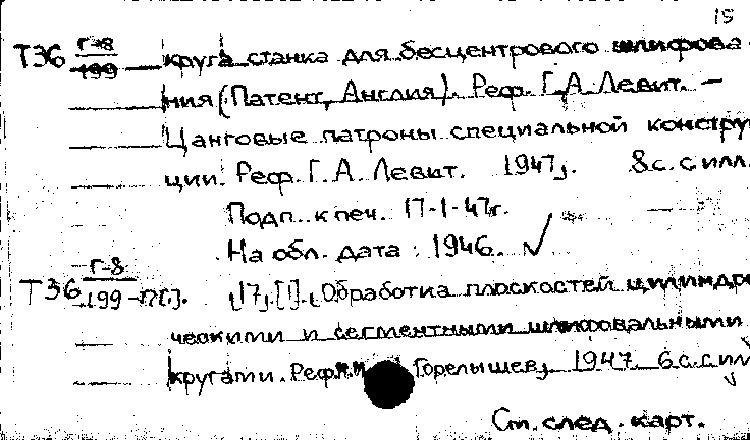 15
Т36 Г-8/199 круга станка для бесцентрового шлифова-
ния (Патент, Англия). Реф. Г.А. Левит. –
Цанговые патроны специальной констру
ции. Реф. Г. А. Левит. 1947. 8 с. с илл.
Подп. к печ. 17-1-47г.
На обл. дата: 1946. ✓
Т36 Г-8/199-17[1]. [17, [1]. Обработка плоскостей цилиндри
ческими и сегментными шлифовальными
кругами. Реф. Горелышев, 1947. 6 с. с ил
См. след. карт.